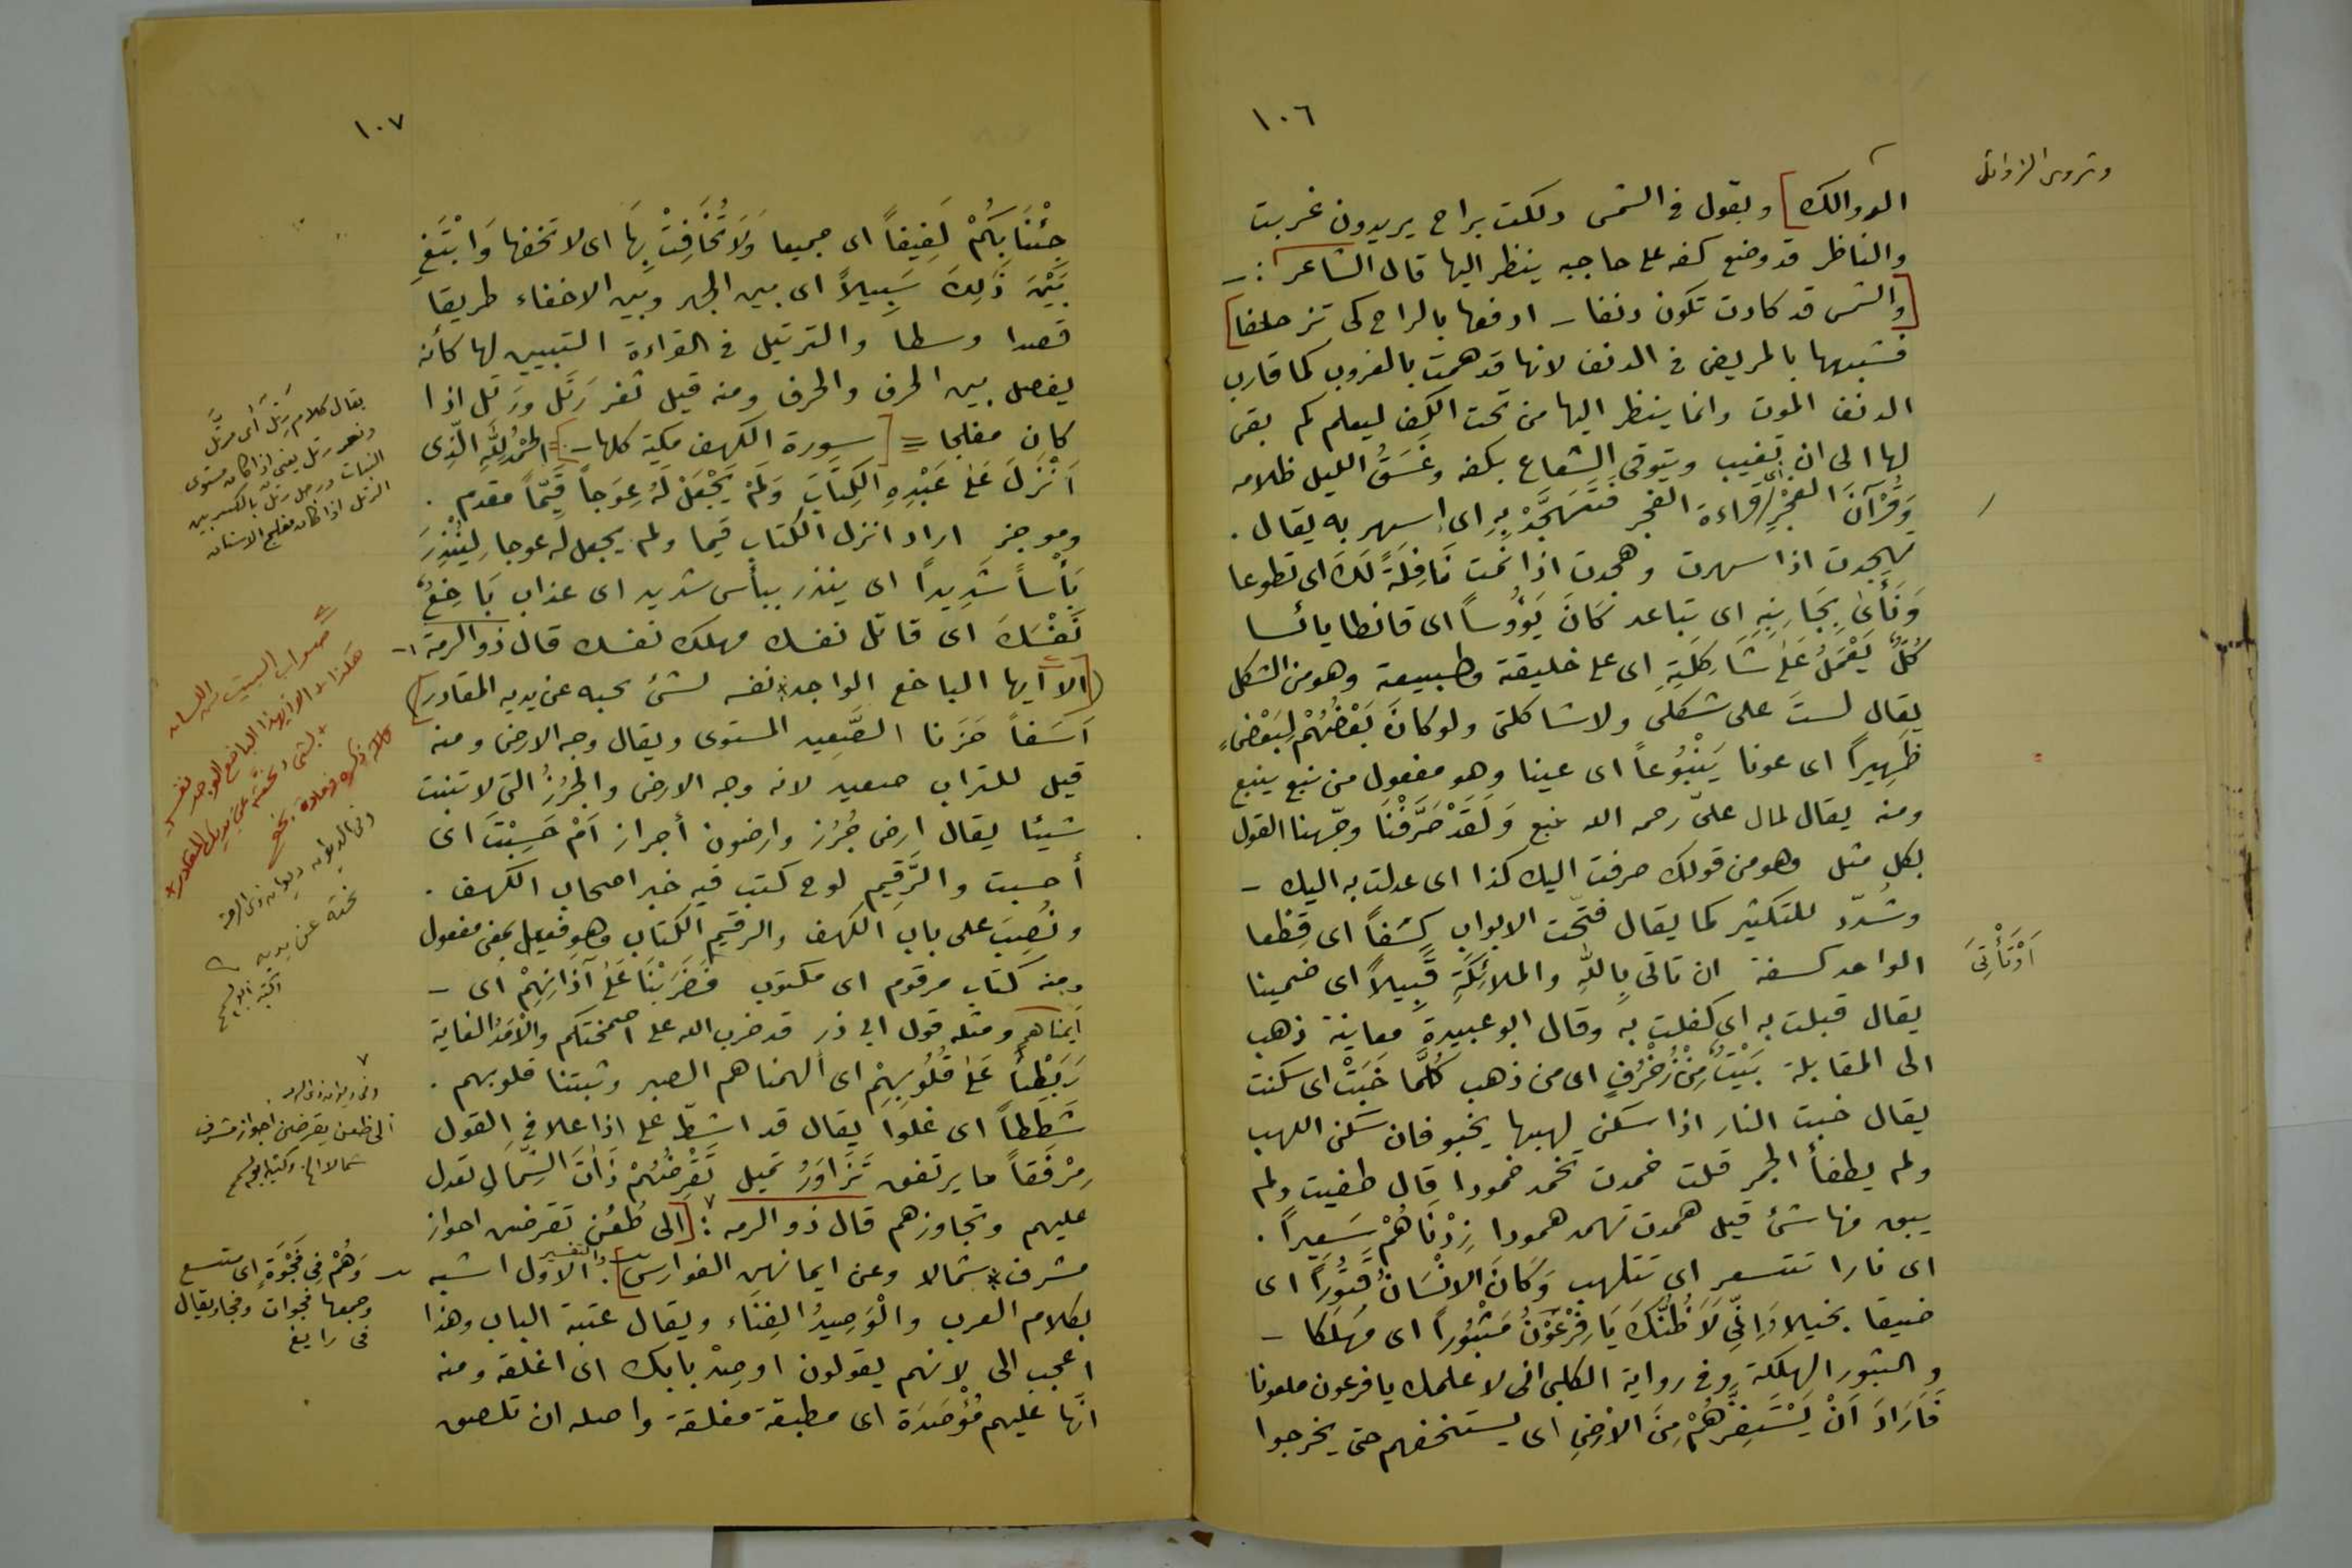 ١٠٦
الدوالك] ويقول في الشمس دلكت براح يريدون غربت
والناظر قد وضع كفه على حاجبه ينظر اليها قال الشاعر :ـ
[والشمس قد كادت تكون دنفا ـ ادفعها بالراح كى تزحلفا]
فشبهها بالمريض في الدنف لانها قد همت بالغروب كما قارب
الدنف الموت وانما ينظر اليها من تحت الكف ليعلم كم بقى
لها الى ان تغيب ويتوقى الشعاع بكفه وغَسَقُ الليل ظلامه
وَقُرْآنَ الفَجْرِ اى قراءة الفجر فَتَهَجَّدْ بِهِ اى اسهر به يقال .
تهجدت اذا سهرت وهجدت اذا نمت نَافِلَةً لَكَ اى تطوعا
وَنَأَىٰ بِجَانِبِهِ اى تباعد كَانَ يَؤُوساً اى قانطا يائسا
كُلٌّ يَعْمَلُ عَلىٰ شَاكِلَتِهِ اى على خليقة وطبيعة وهو من الشكل
يقال لستَ على شكلى ولا شاكلتى ولو كانَ بَعْضُهُمْ لِبَعْضٍ
ظَهِيراً اى عونا يَنْبُوعاً اى عينا وهو مفعول من نبع ينبع
ومنه يقال لمال علىّ رحمه الله ينبع وَلَقَدْ صَرَّفْنَا وجّهنا القول
بكل مثل وهو من قولك صرفت اليك كذا اى عدلت به اليك ـ
وشُدّد للتكثير كما يقال فتّحت الابواب كِسَفاً اى قِطَعا
الواحد كسفة ان تاتى بِاللّهِ والملائِكَةِ قَبِيلاً اى ضمينا
يقال قبلت به اى كفلت به وقال ابو عبيدة معاينة ذهب
الى المقابلة بَيْتٌ مِنْ زُخْرُفٍ اى من ذهب كُلَّمَا خَبَتْ اى سكنت
يقال خبت النار اذا سكن لهبها يخبو فان سكن اللهب
ولم يطفأ الجمر قلت خمدت تخمد خمودا قال طفيت ولم
يبق منها شئ قيل همدت تهمد همودا زِدْنَاهُمْ سَعِيراً .
اى نارا تتسعر اى تتلهب وَكَانَ الانْسَانُ قَتُوراً اى
ضيقا بخيلا وَاِنِّي لَاَظُنُّكَ يَا فِرْعَوْنُ مَثْبُوراً اى مُهلَكا ـ
والثبور الهلكة وفى رواية الكلبى انى لا علمك يا فرعون ملعونا
فَاَرَادَ اَنْ يَسْتَفِزَّهُمْ مِنَ الارْضِ اى يستخفهم حتى يخرجوا
وتروى الزوائل
اَوْتَأْتِىَ
١٠٧
جِئْنَا بِكُمْ لَفِيفاً اى جميعا وَلَا تُخَافِتْ بِهَا اى لا تخفها وَابْتَغِ
بَيْنَ ذٰلِكَ سَبِيلاً اى بين الجهر وبين الاخفاء طريقا
قصدا وسطا والترتيل في القراءة التبيين لها كأنه
يفصل بين الحرف والحرف ومنه قيل ثغر رَتَل ورَتل اذا
كان مفلجا = [سورة الكهف مكية كلها ـ] = الحْمْدُ لِلَّهِ الَّذِى
اَنْزَلَ عَلىٰ عَبْدِهِ الكِتَابَ وَلَمْ يَجْعَلْ لَهُ عِوَجاً قَيِّماً مقدم .
وموخر اراد انزل الكتاب قيما ولم يجعل له عوجا لِيُنْذِرَ
بَأْساً شَدِيداً اى ينذر ببأس شديد اى عذاب بَاخِعٌ
نَفْسَكَ اى قاتل نفسك مهلك نفسك قال ذو الرمة :ـ
([الا ايها الباخع الواجد نفسه لشئ نحبه عن يديه المقادر])
اَسَفاً حَزَنا الصَّعِيد المستوى ويقال وجه الارض ومنه
قيل للتراب صعيد لانه وجه الارض والجُرُزُ التى لا تنبت
شيئا يقال ارض جُرُز وارضون أجراز اَمْ حَسِبْتَ اى
أحسبت والرَّقِيم لوح كتب فيه خبر اصحاب الكهف .
ونُصِبَ على باب الكهف والرقيم الكتاب وهو فعيل بمعنى مفعول
ومنه كتاب مرقوم اى مكتوب فَضَرَبْنَا عَلىٰ آذَانِهِمْ اى ـ
أنمناهم ومثله قول ابى ذر قد ضرب الله على اصمختكم والْاَمَدُ الغاية
رَبَطْنَا عَلىٰ قُلُوبِهِمْ اى ألهمناهم الصبر وثبتنا قلوبهم .
شَطَطاً اى غلوا يقال قد اشطّ على اذا غلا في القول
مِرْفَقاً ما يرتفق تَزَاوَرُ تميل تَقْرِضُهُمْ ذَاتَ الشِّمَالِ تعدل
عليهم وتجاوزهم قال ذو الرمه : [الى ظُعُن تقرضن اجواز
مشرف شمالا وعن ايمانهن الفوارس] . والتفسير الاول اشبه
بكلام العرب والْوَصِيدُ الفِنَاء ويقال عتبة الباب وهذا
اعجب الى لانهم يقولون اوصِدْ بابك اى اغلقه ومنه
انّها عليهم مُؤْصَدَة اى مطبقة مغلقة واصله ان تلصق
يقال كلام رَتَل أى مرتّل
وثغر رتل يعنى اذا كان مستوى
النبات ورجل رتل بالكسر بين
الرتل اذا كان مفلج الاسنان
صواب البيت
هكذا الا ايهذا الباخع الوجد نفسه
لشئ نحته عن يديك المقادر
وفى الديوان ديوان ذى الرمة
نحته عن يديه
وفى ديوان ذى الرمه
الى ظعن يقرضن اجواز مشرف
شمالا الخ وكتبه ابو
وَهُمْ فِي فَجْوَةٍ اى متسع
وجمعها فجوات وفجاء ويقال
فى